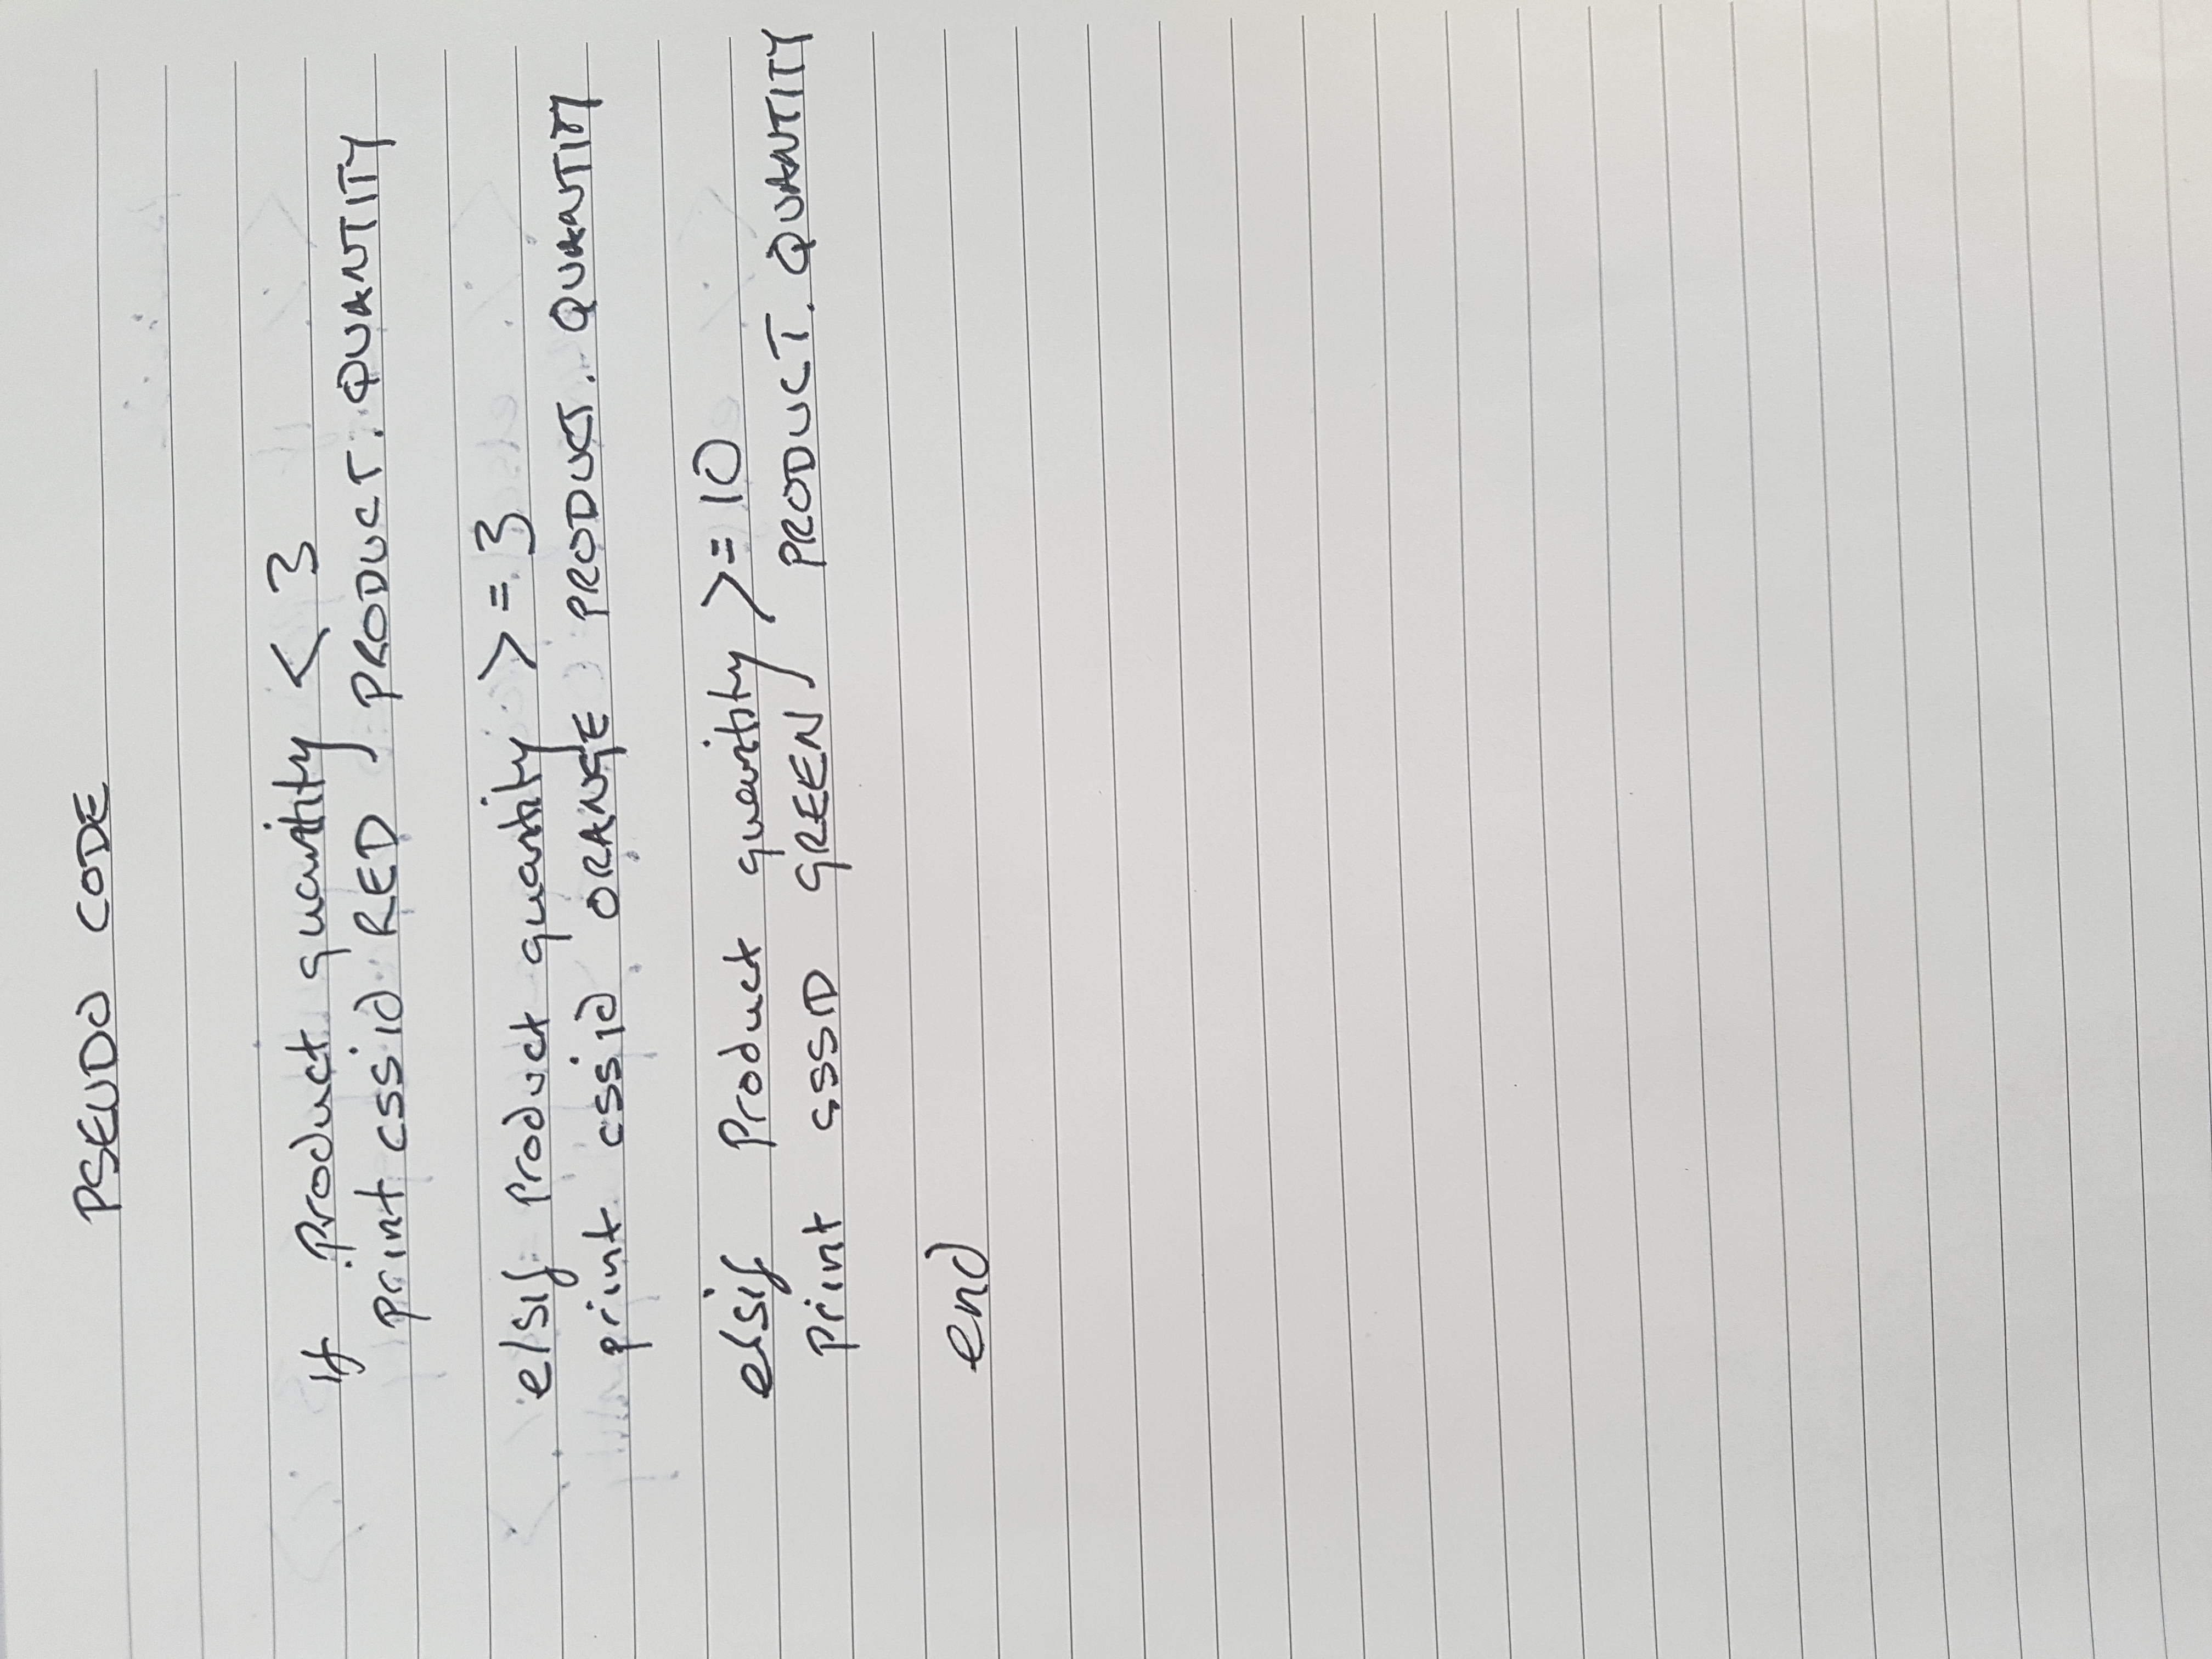 PSEUDO CODE
if Product quantity < 3
print cssid RED PRODUCT. QUANTITY
elsif Product quantity >= 3
print cssid ORANGE PRODUCT. QUANTITY
elsif Product quantity >= 10
Print SSSID GREEN PRODUCT. QUANTITY
end